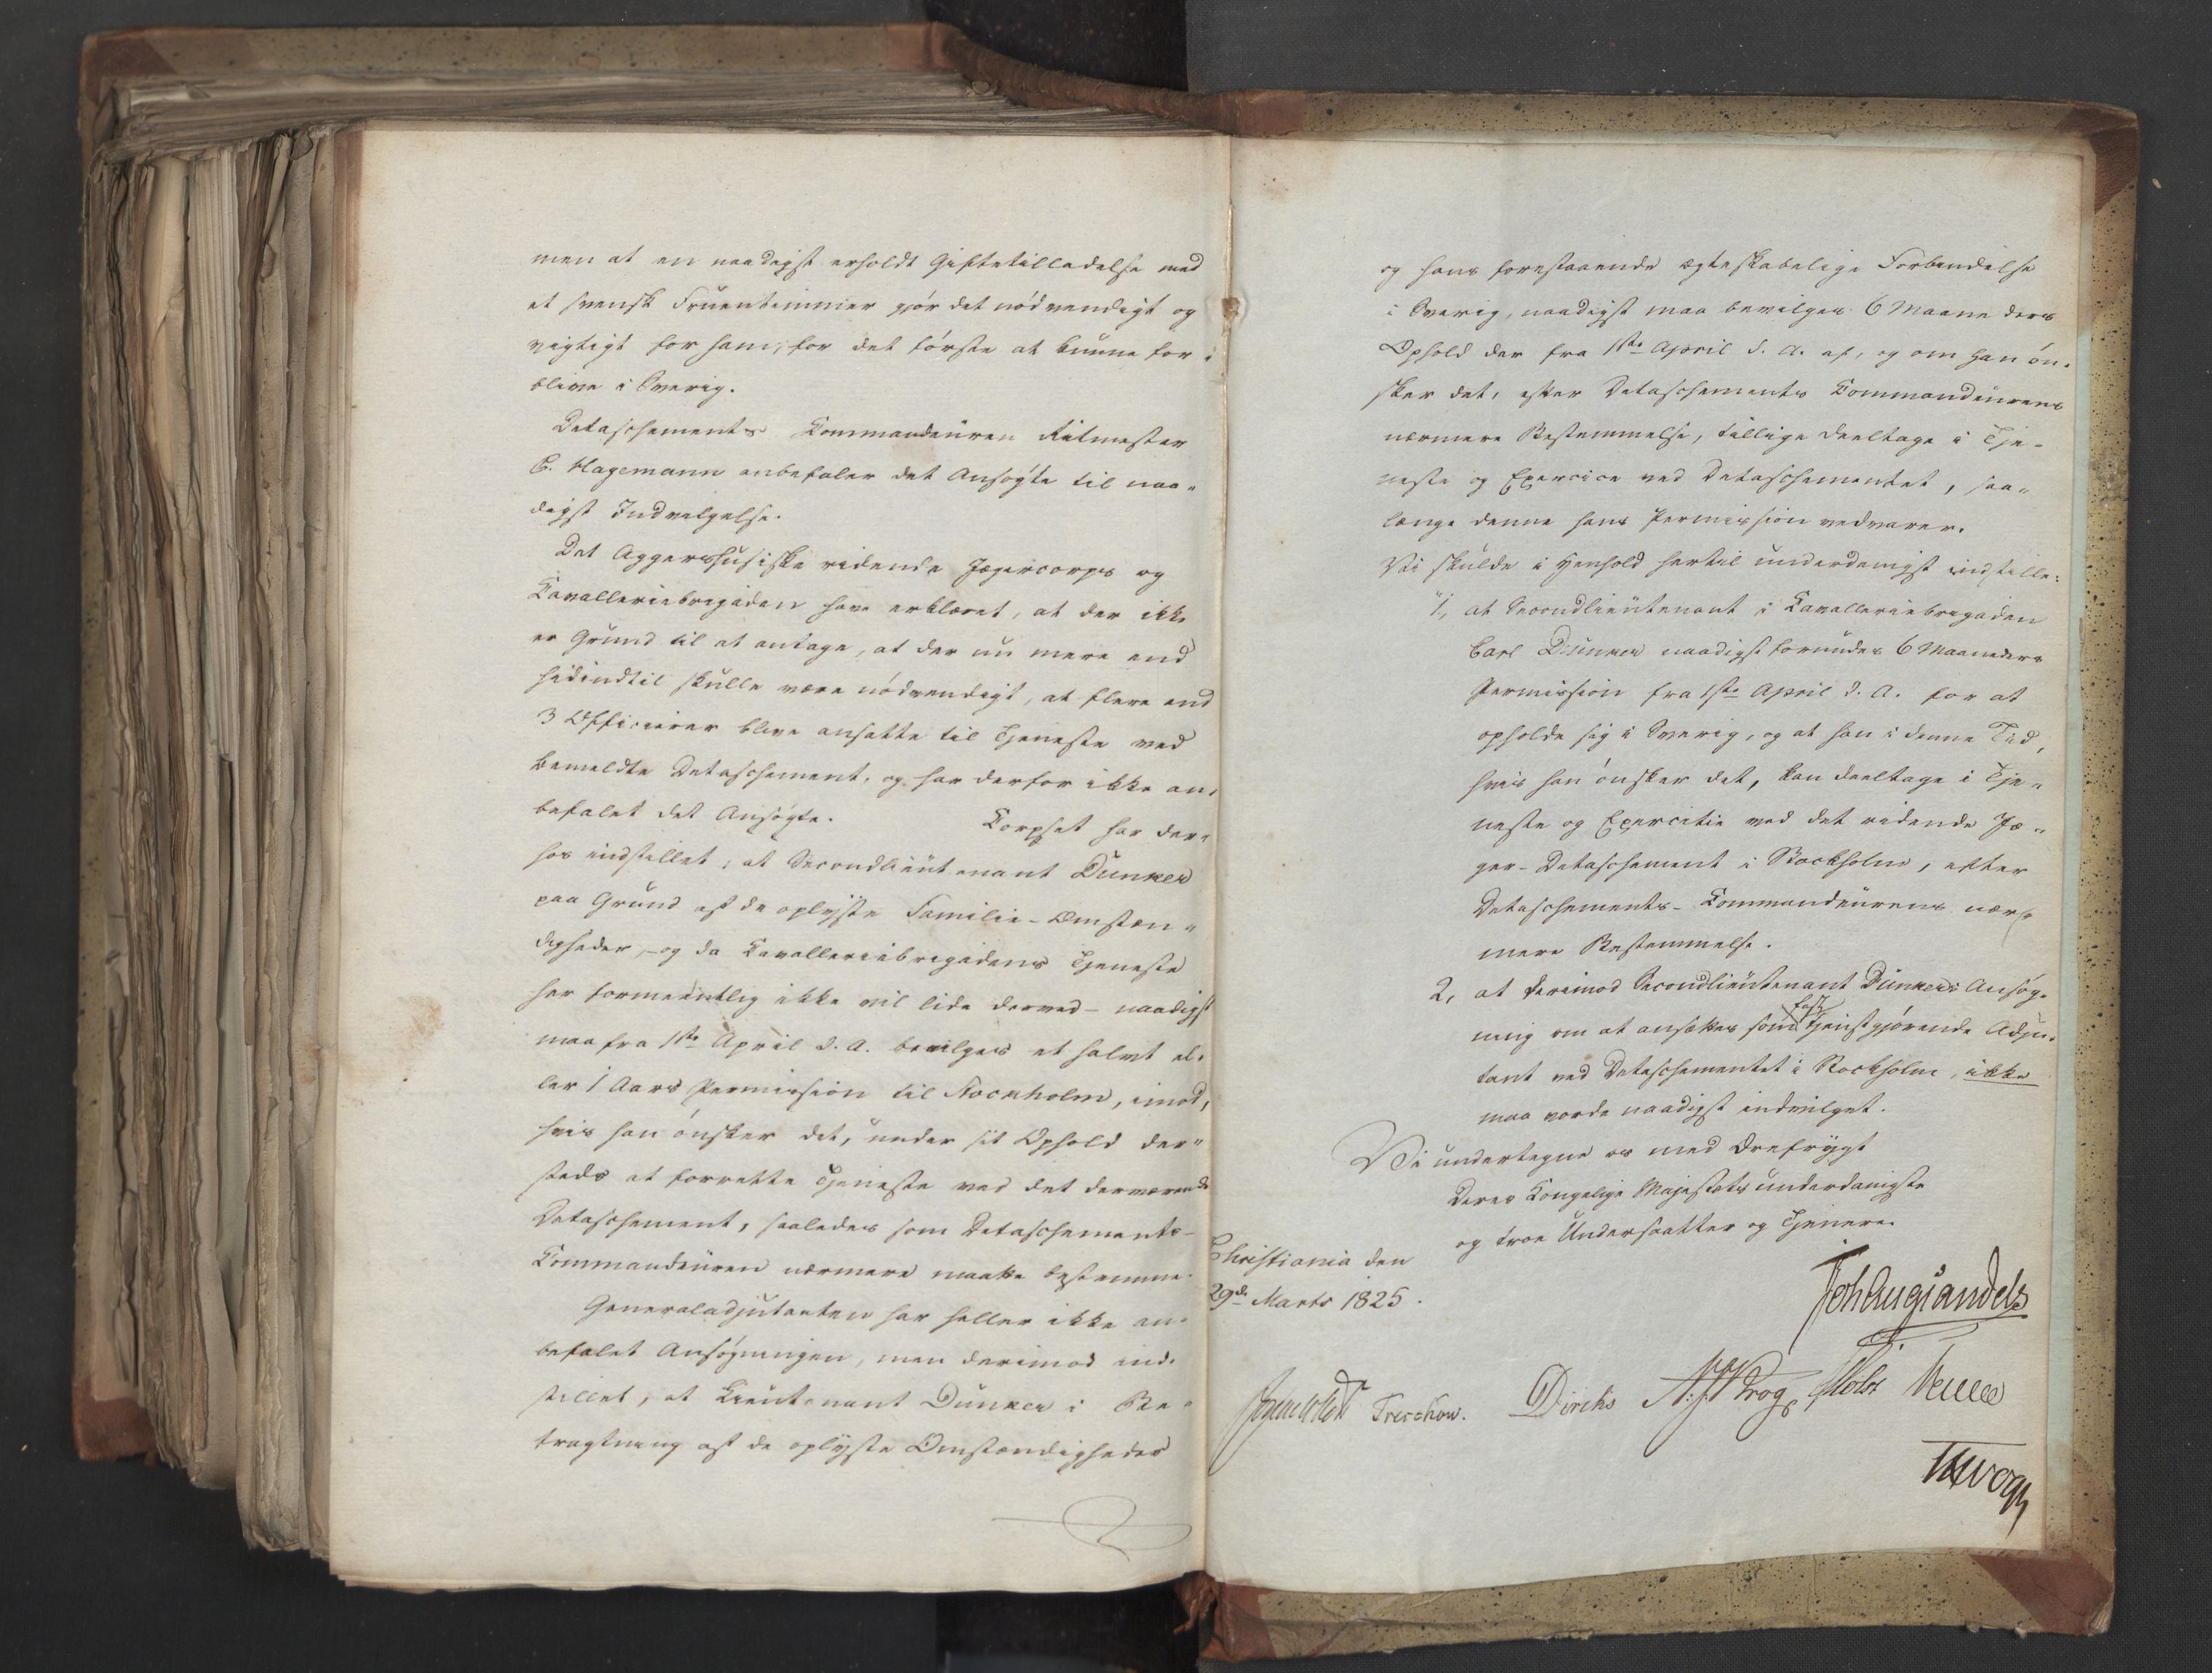 men at en naadigst erholdt Giftetilladelse med
et svensk Fruentimmer gjør det nødvendigt og
vigtigt for ham, for det første at kunne for¬
blive i Sverig.
Detaschements Commandeuren Ritmester
C. Hagemann anbefaler det Ansøgte til naa¬
digst Indvilgelse.
Det Aggershusiske ridende Jægercorps og
Cavalleriebrigaden have erklæret, at der ikke
er Grund til at antage, at der nu mere end
hidindtil skulle være nødvendigt, at flere end
3 Officierer blive ansatte til Tjeneste ved
bemeldte Detaschement, og har derfor ikke an¬
befalet det Ansøgte. Corpset har der¬
hos indstillet, at Secondlieutenant Dunker
paa Grund af de oplyste Familie-Omstæn¬
digheder, - og da Cavalleriebrigadens Tjeneste
her formeentlig ikke vil lide derved - naadigst
maa fra 1ste April d. A. bevilges et halvt el¬
ler 1 Aars Permission til Stockholm, imod,
hvis han ønsker det, under sit Ophold der¬
steds at forrette Tjeneste ved det derværende
Detaschement, saaledes som Detaschements-
Commandeuren nærmere maatte bestemme.
Generaladjutanten har heller ikke an¬
befalet Ansøgningen, men derimod ind¬
stillet, at Lieutenant Dunker i Be¬
tragtning af de oplyste Omstændigheder
og hans forestaaende ægteskabelige Forbindelse
i Sverig, naadigst maa bevilges 6 Maaneders
Ophold der fra 1ste April d. A. af, og om han øn¬
sker det, efter Detaschements Commandeurens
nærmere Bestemmelse, tillige deeltage i Tje¬
neste og Exercice ved Detaschementet, saa¬
længe denne hans Permission vedvarer.
Vi skulde i Henhold hertil underdanigst indstille:
1, at Secondlieutenant i Cavalleriebrigaden
Carl Dunker naadigst forundes 6 Maaneders
Permission fra 1ste April d. A. for at
opholde sig i Sverig, og at han i denne Tid,
hvis han ønsker det, kan deeltage i Tje¬
neste og Exercitie ved det ridende Jæ¬
ger-Detaschement i Stockholm, efter
Detaschements-Commandeurens nær¬
mere Bestemmelse.
2, at derimod Secondlieutenant Dunkers Ansøg¬
ning om at ansættes som fast Tjenstgjørende Adju¬
tant ved Detaschementet i Stockholm, ikke
maa vorde naadigst indvilget.
Vi undertegne os med Ærefrygt
Deres Kongelige Majestæts underdanigste
og troe Undersaatter og Tjenere.
Christiania den
29de Marts 1825.
Joh Aug Sandels
Treschow. Diriks